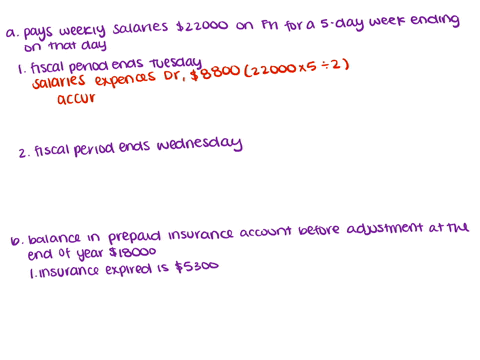 a. pays weekly salaries $22000 on Fri for a 5-day week ending
on that day
1. fiscal period ends Tuesday
salaries expences Dr, $8800 (22000x5÷2)
accur
2. fiscal period ends wednesday
b. balance in prepaid insurance account before adjustment at the
end of year $18000
1. insurance expired is $5300